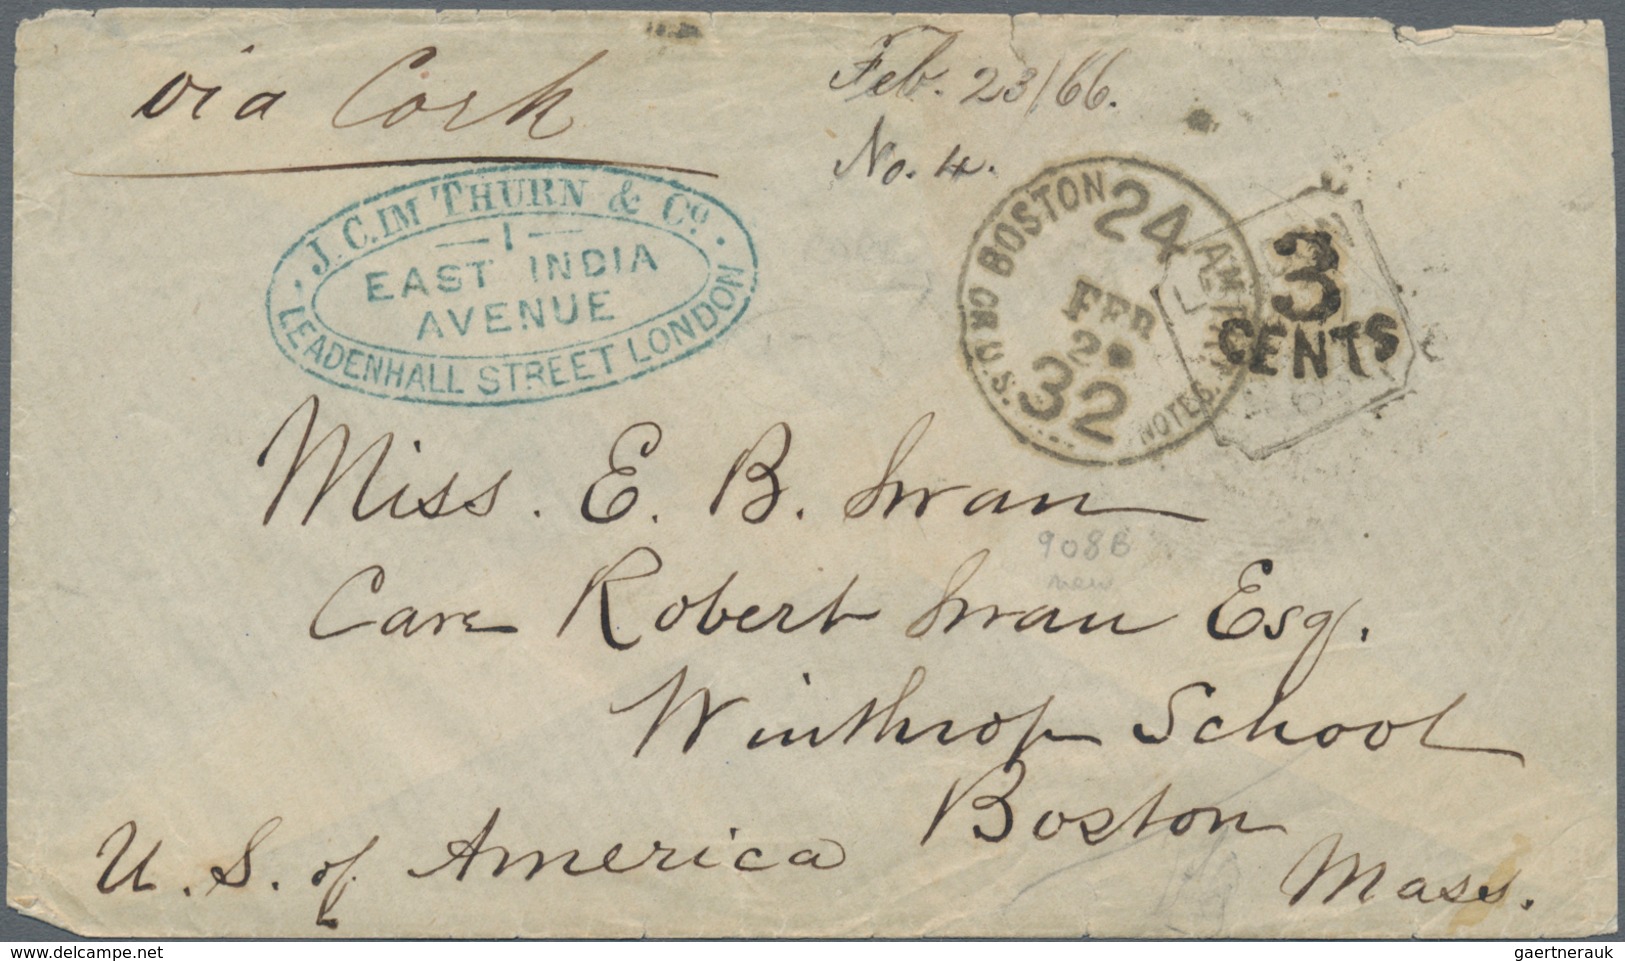 via Cork
Feb. 23/66.
No. 4.
J. C. IM THURN & Co.
1
EAST INDIA
AVENUE
LEADENHALL STREET LONDON
BOSTON
24
FEB
32
OR U.S.
NOTES.
3
CENTS
Miss. E. B. Swan
908B
new
Care Robert Swan Esq.
Winthrop School
Boston
Mass.
U. S. of America
gaertnerauk